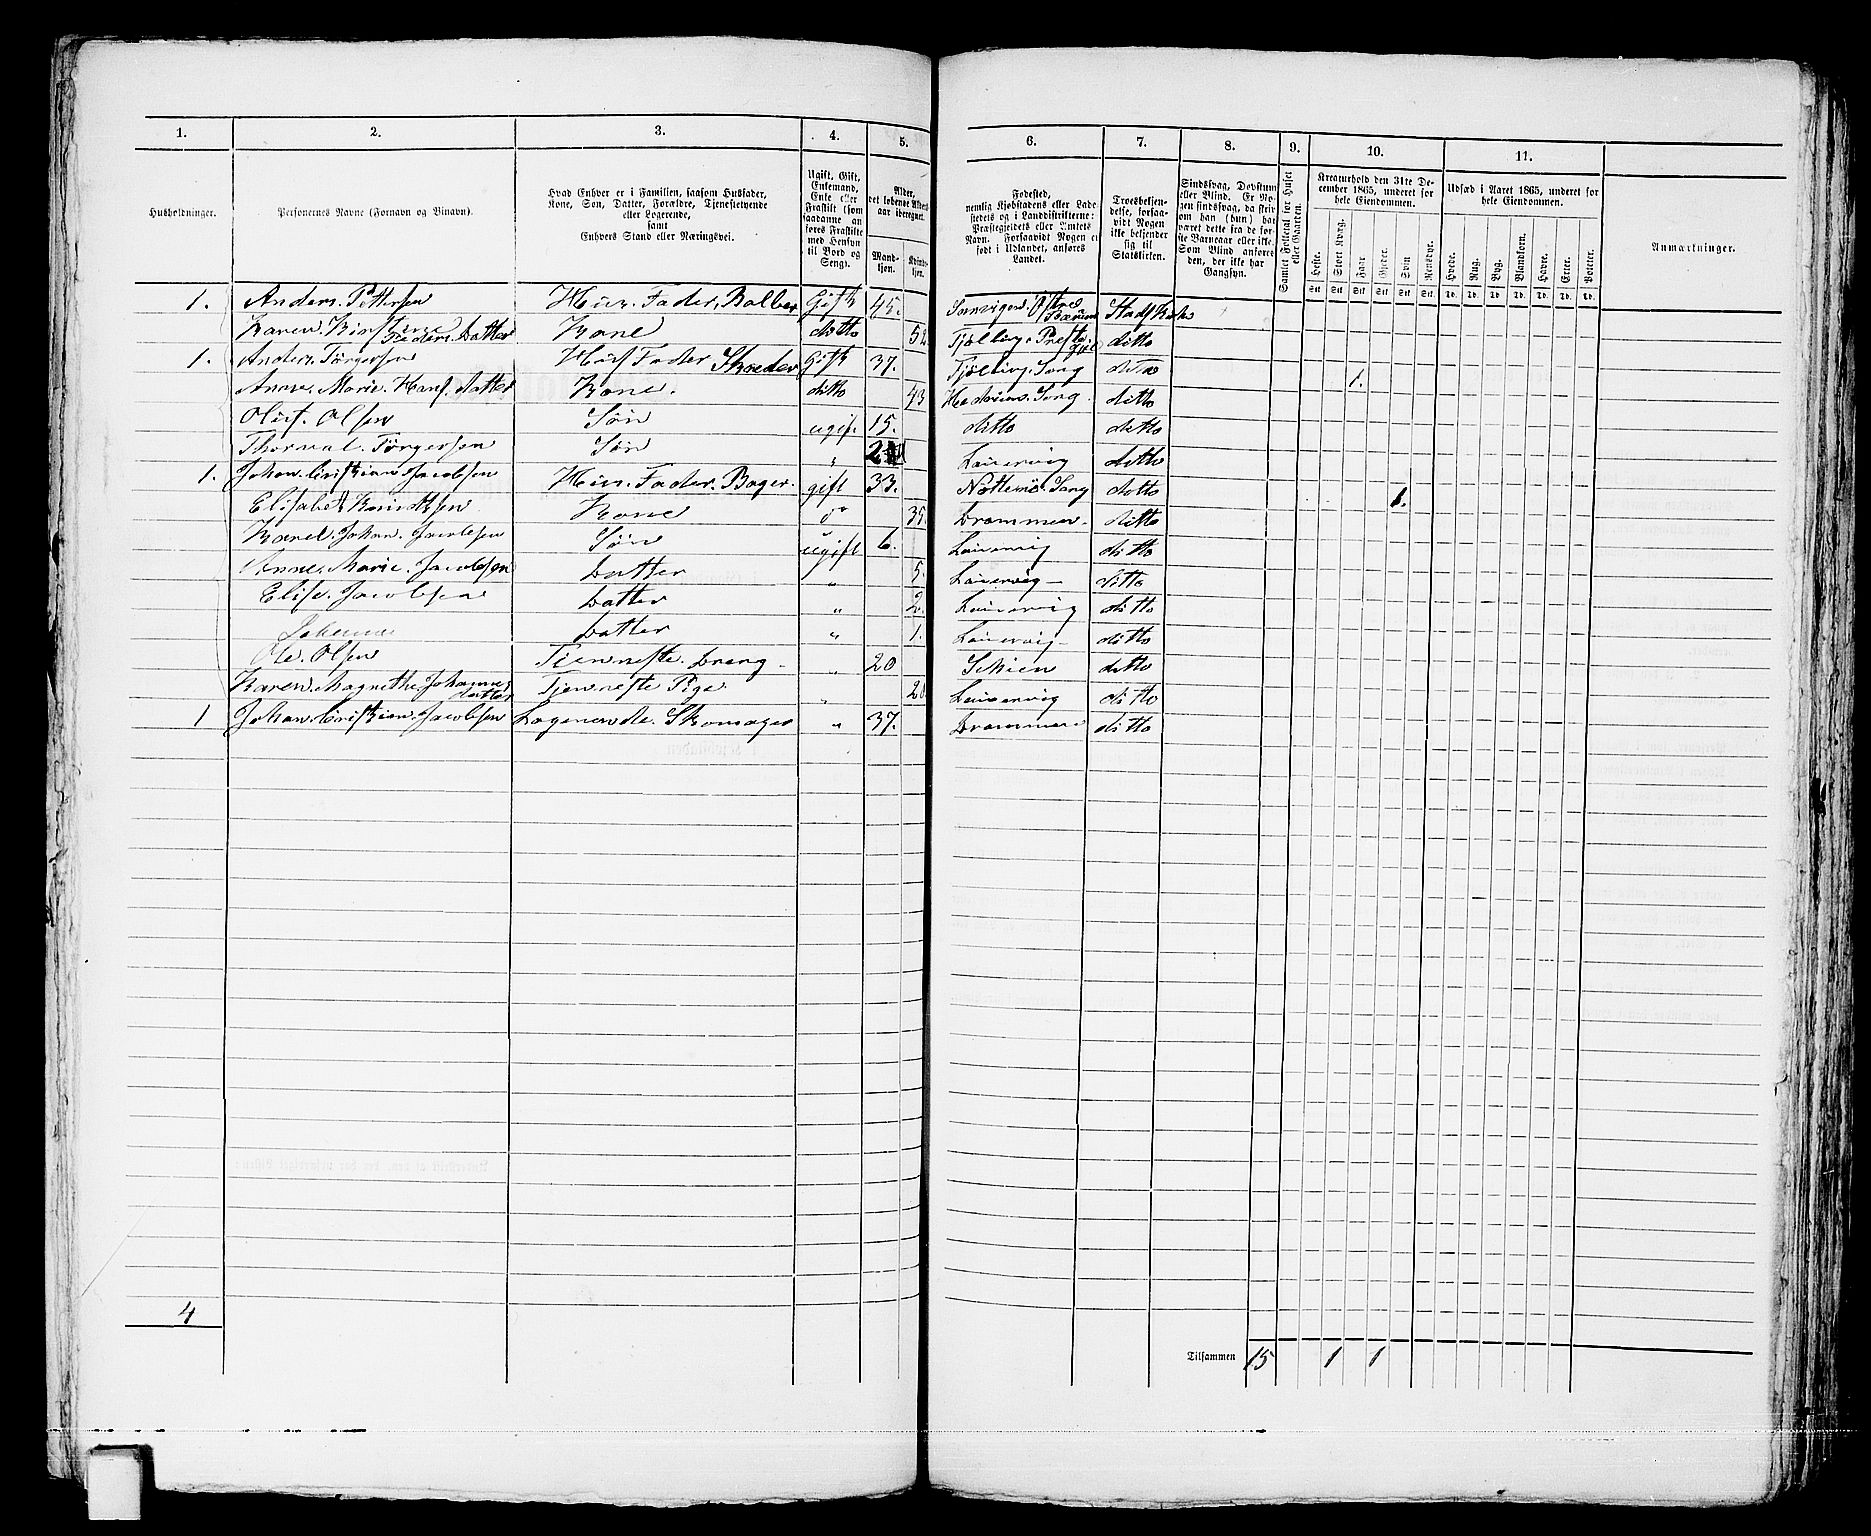 1. 2. 3. 4. 5. 6. 7. 8. 9. 10. 11.
Husholdninger.
Personernes Navne (Fornavn og Tilnavn).
Hvad Enhver er i Familien, saasom Husfader,
Kone, Søn, Datter, Forældre, Tjenestetyende
eller Logerende,
samt
Enhvers Stand eller Næringsvei.
Ugift, Gift,
Enkemand,
Enke eller
Fraskilt (som
saadanne an-
føres Fraskilte
med Hensyn
til Bord og
Seng).
Alder,
det løbende Alders-
aar iberegnet.
Mand-
kjøn.
Kvind-
kjøn.
Fødested,
nemlig Kjøbstadens eller Lade-
stedets og i Landdistrikterne:
Præstegjeldets eller Amtets
Navn. Forsaavidt Nogen er
født i Udlandet, anføres
Landet.
Troesbekjen-
delse, forsaa-
vidt Nogen
ikke bekjender
sig til
Statskirken.
Sindssvag, Døvstum
eller Blind. Er No-
gen sindssvag, da skriv
om han (hun) har
været dette fra de før-
ste Barneaar eller ikke.
Som Blind anføres
den, der ikke har
Gangsyn.
Samlet Folketal for Huset
eller Gaarden.
Kreaturhold den 31te De-
cember 1865, underet for
hele Eiendommen.
Heste. Stort Kvæg. Faar. Gjeder. Svin. Rensdyr.
Stk. Stk. Stk. Stk. Stk. Stk.
Udsæd i Aaret 1865, underet for
hele Eiendommen.
Hvede. Rug. Byg. Blandkorn. Havre. Erter. Poteter.
Td. Td. Td. Td. Td. Td. Td.
Anmærkninger.
1. Anders. Pettersen Huus. Fader, Gift 45. Østre Bærum
Karen Pedersdatter Kone ditto Tjølling. Preste Gjel ditto
1. Anders. Tørgersen Huus Fader Gift 37. Tjølling. Song ditto 1.
Anne. Marie. Hans. datter Kone. ditto 43 Hedrum. Song ditto
Oluf. Olsen Søn ugif. 15. ditto ditto
Thorval. Tørgersen Søn " Laurvig ditto
1. Johan. Cristian. Jacobsen Huus. Fader. Bager. gift 33. Nøtterø. Song ditto 1.
Elisabet Kone do 35 Drammen. ditto
Karel. Johan. Jacobsen Søn ugift 6. Laurvig ditto
Anne. Marie. Jacobsen Datter " 5. Laurvig ditto
Elise. Jacobsen Datter " 2. Laurvig ditto
Datter " 1. Laurvig ditto
Ole. Olsen Tienneste. Dreng " 20 Skien ditto
Karen. Magrethe. Johannes datter Tjenneste Pige " Laurvig ditto
1 Johan. Cristian. Jacobsen Logerende. Skomager " 37. Drammen ditto
4
Tilsammen 15 1 1